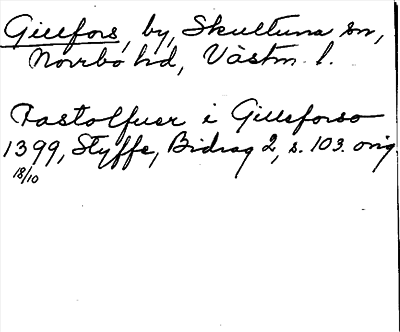 Gillfors, by, Skultuna sn,
Norrbo hd, Västm. l.
Fastolfuer i Gillisforso
1399, Styffe, Bidrag 2, s. 103. orig.
18/10